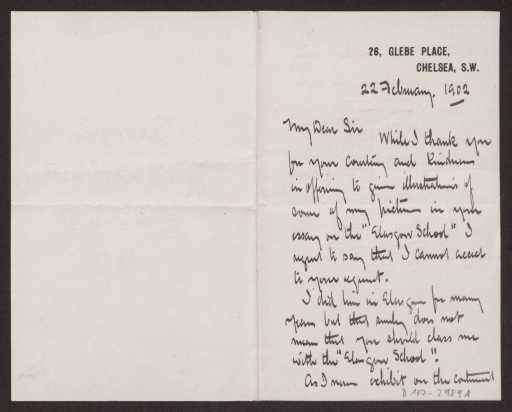 26, GLEBE PLACE,
CHELSEA, S.W.
22 February. 1902
My Dear Sir While I thank you
for your courtesy and kindness
in offering to give illustrations of
some of my pictures in your
essay on the "Glasgow School" I
regret to say that I cannot accede
to your request.
I did live in Glasgow for many
years but that surely does not
mean that you should class me
with the "Glasgow School".
As I never exhibit on the continent
D 102-2989A